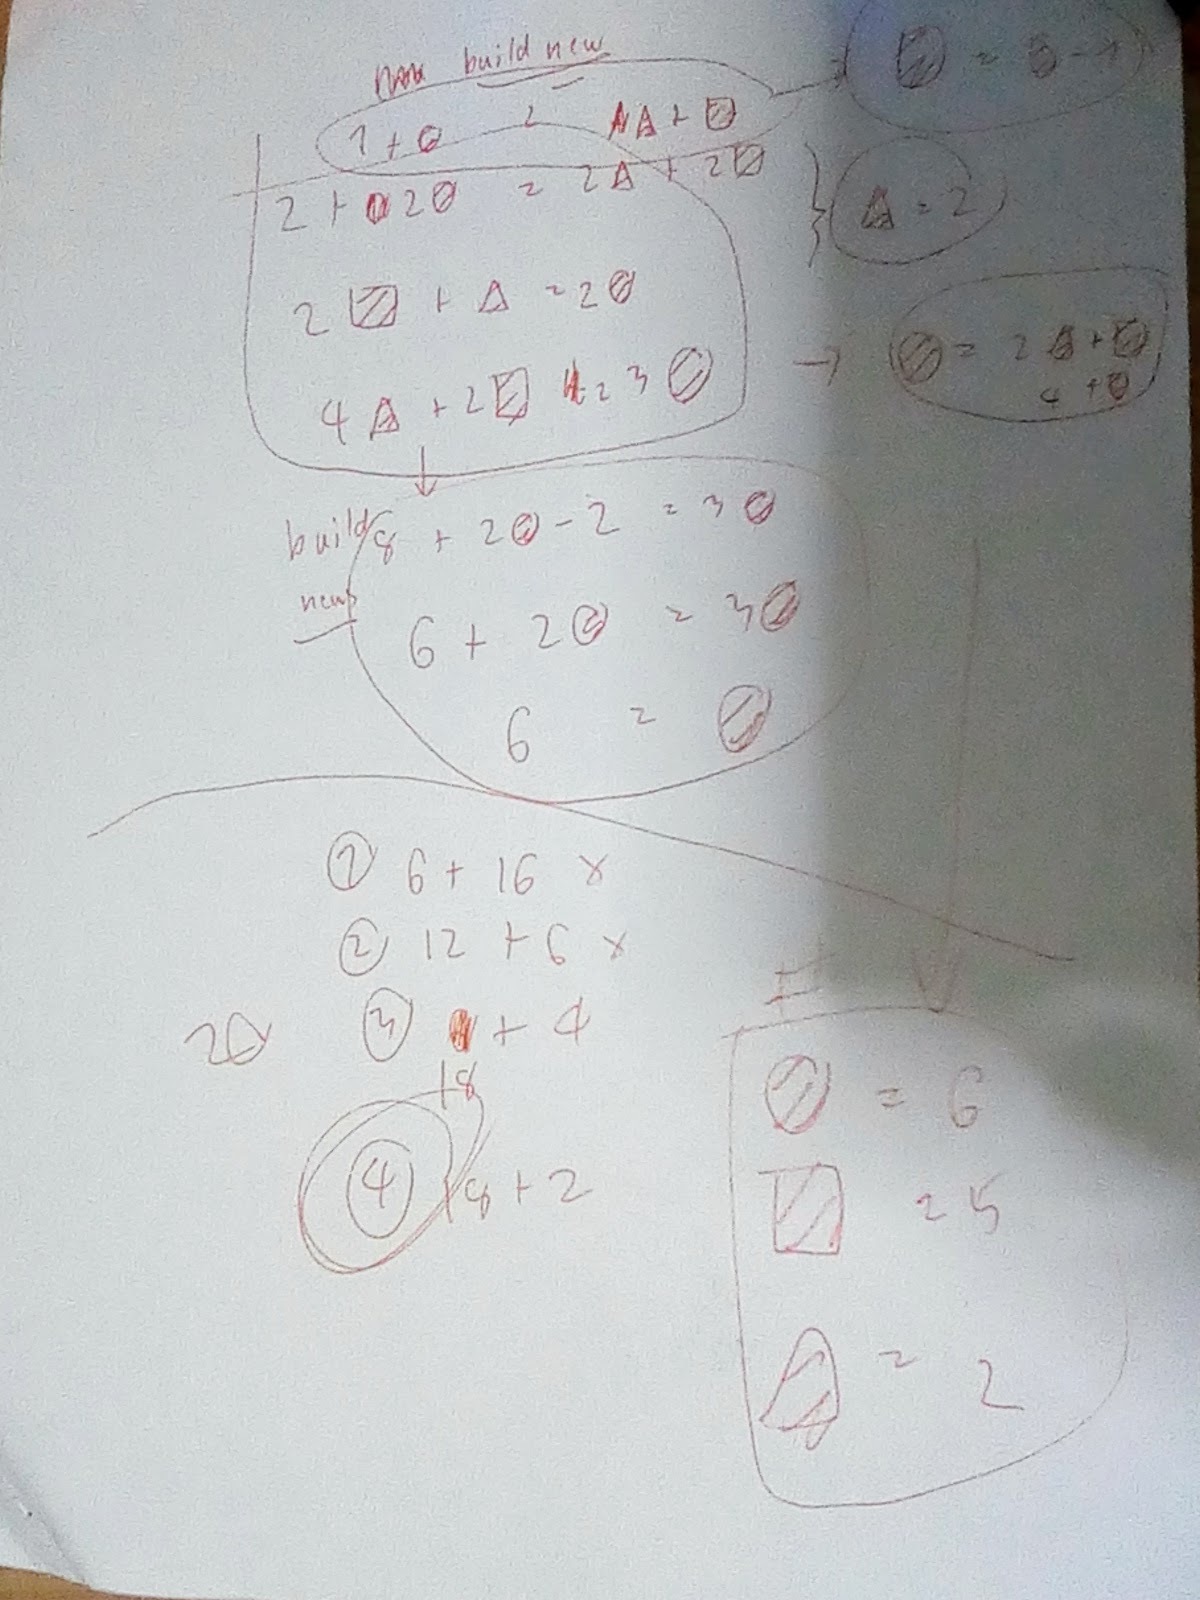 build new
▨ = ○ - 1
1 + ○ = △ + □
2 + 2○ = 2△ + 2□
△ = 2
2 □ + △ = 2○
○ = 2△ + □
4 + □
4△ + 2□ = 3○
build
new
8 + 2○ - 2 = 3○
6 + 2○ = 3○
6 = ○
① 6 + 16 x
② 12 + 6 x
③ + 4
18
④ 18 + 2
○ = 6
□ = 5
△ = 2